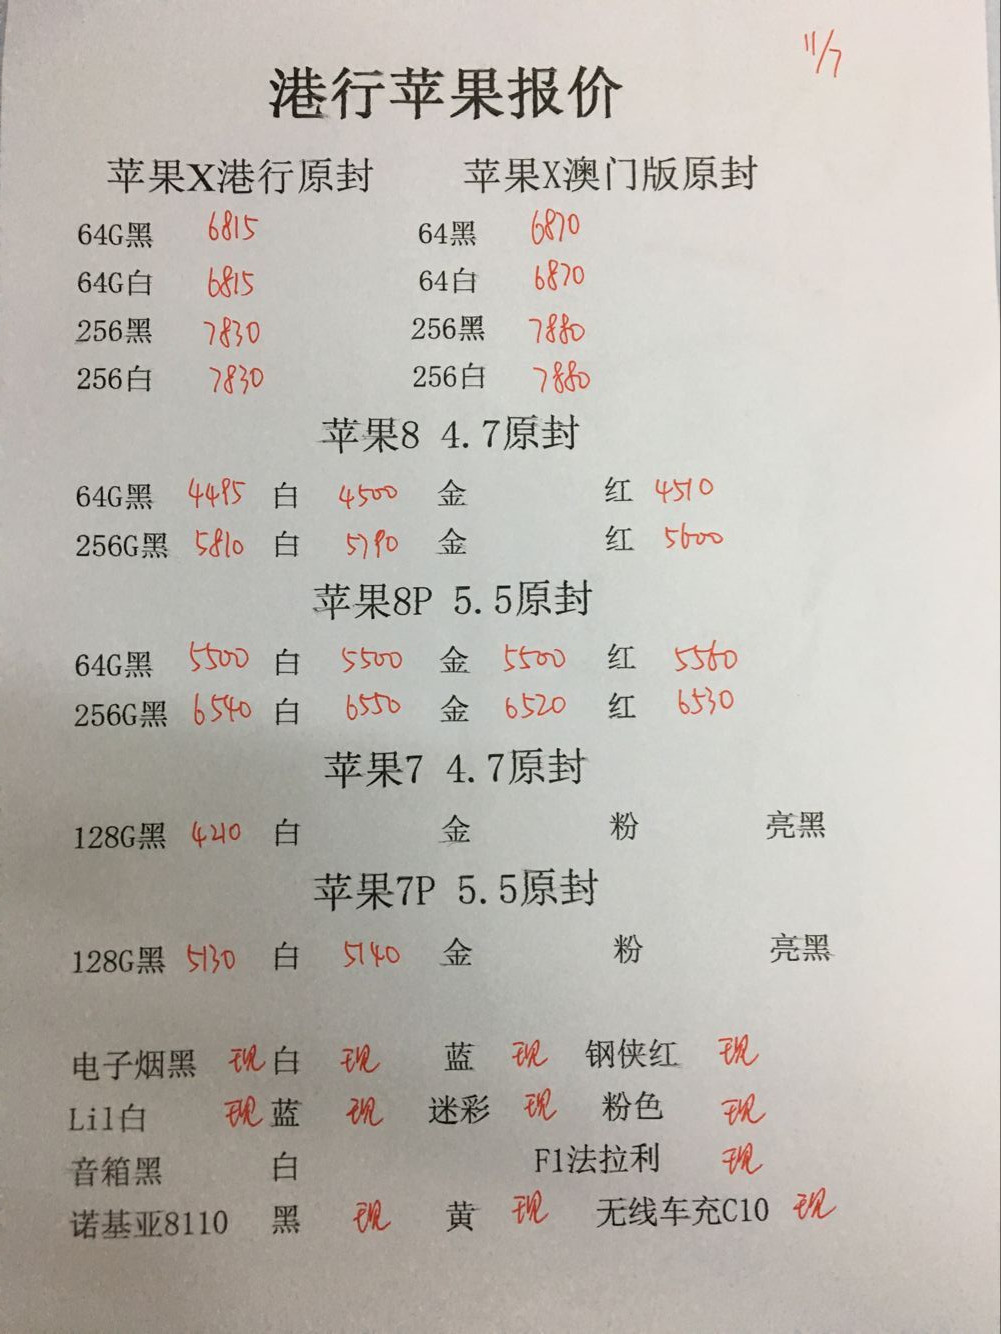 11/7
港行苹果报价
苹果X港行原封 苹果X澳门版原封
64G黑 6815 64黑 6870
64G白 6815 64白 6870
256黑 7830 256黑 7880
256白 7830 256白 7880
苹果8 4.7原封
64G黑 4495 白 4500 金 红 4510
256G黑 5810 白 5790 金 红 5600
苹果8P 5.5原封
64G黑 5500 白 5500 金 5500 红 5560
256G黑 6540 白 6550 金 6520 红 6530
苹果7 4.7原封
128G黑 4210 白 金 粉 亮黑
苹果7P 5.5原封
128G黑 5130 白 5140 金 粉 亮黑
电子烟黑 现 白 现 蓝 现 钢侠红 现
Lil白 现 蓝 现 迷彩 现 粉色 现
音箱黑 白 F1法拉利 现
诺基亚8110 黑 现 黄 现 无线车充C10 现